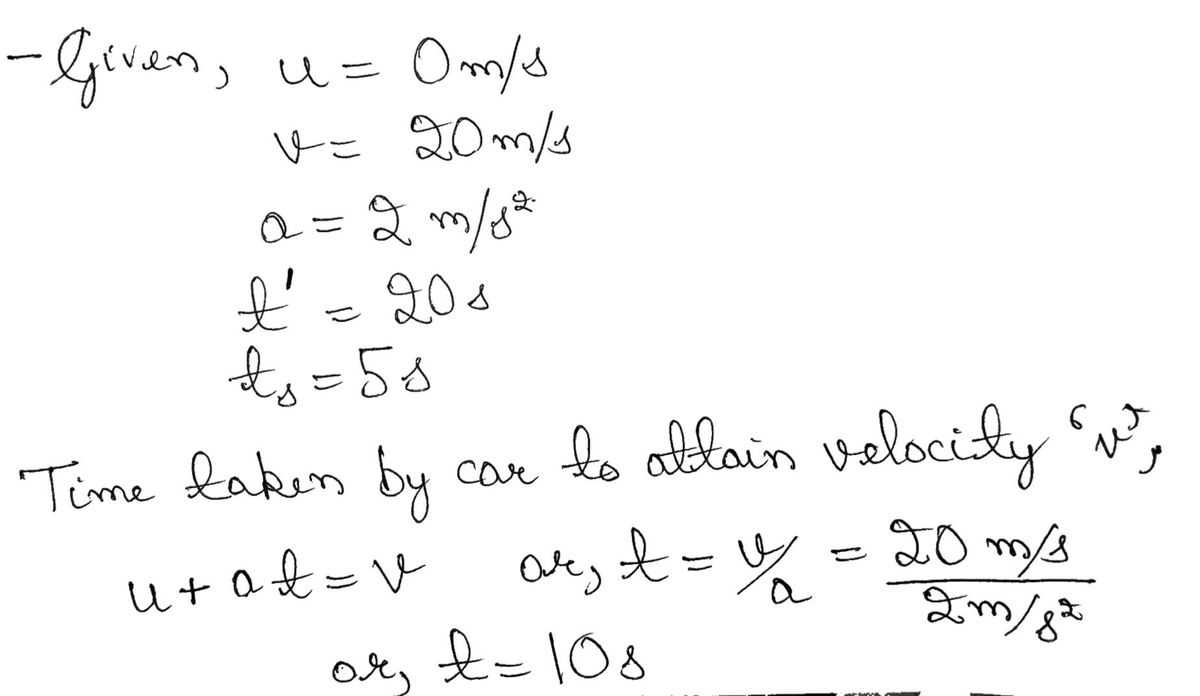 - Given, u = 0 m/s
v = 20 m/s
a = 2 m/s²
t' = 20 s
tₛ = 5 s
Time taken by car to attain velocity ‘v’,
u + at = v or, t = v/a = 20 m/s / 2 m/s²
or, t = 10 s